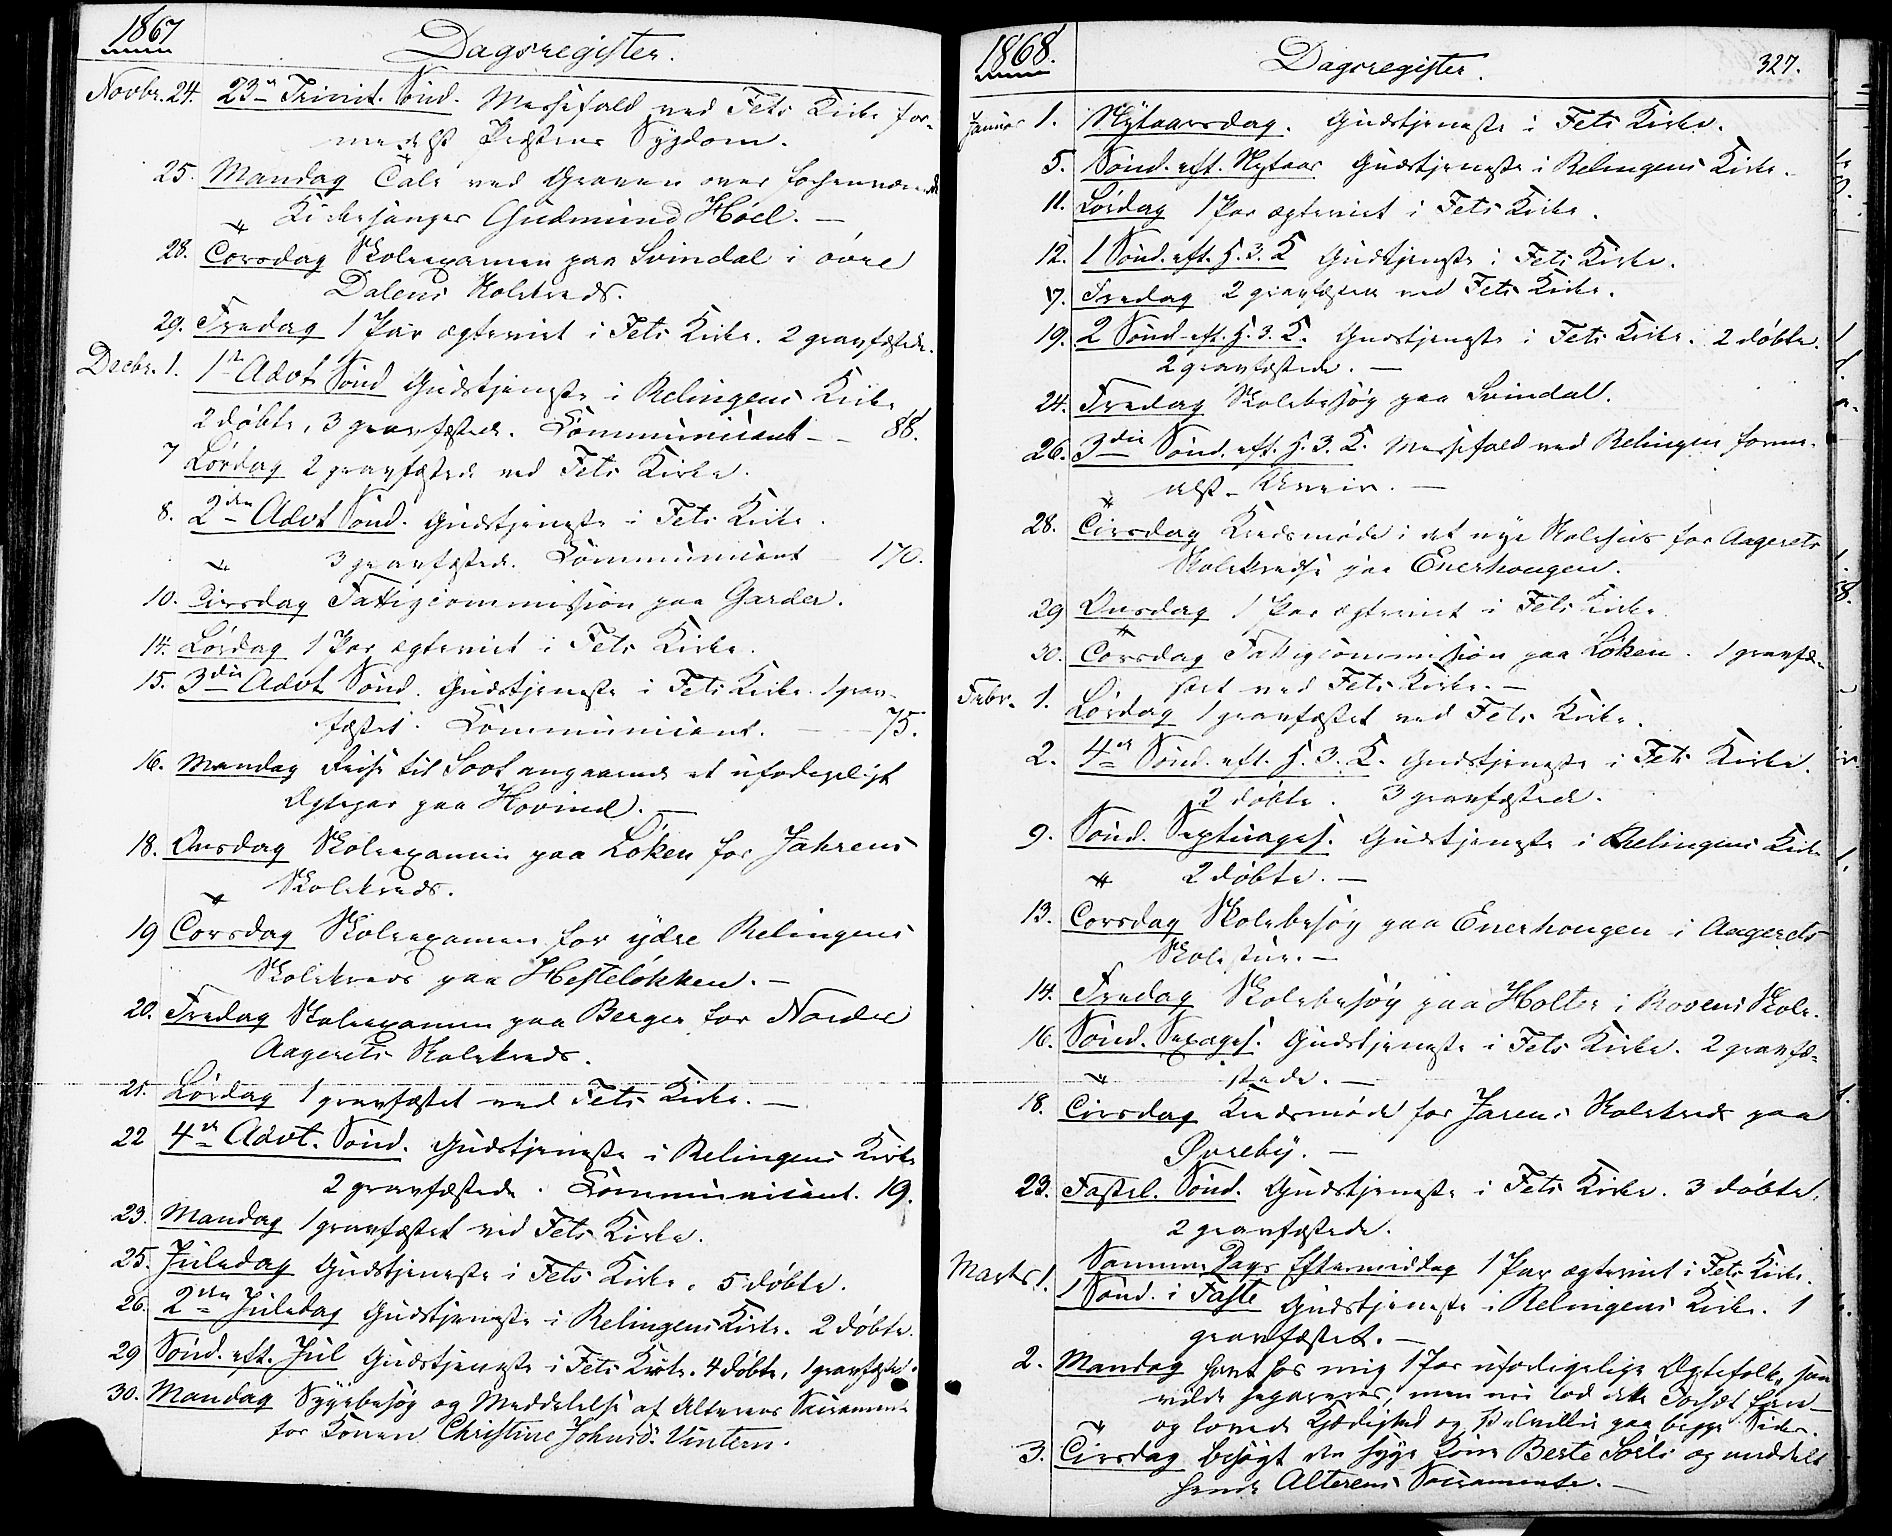 1867
Dagsregister.
Novbr. 24. 23de Trinit. Sönd. Messefald ved Fets Kirke for-
medelst Præstens Sygdom.
25. Mandag Tale ved Graven over forhenværende
Kirkesanger Gudmund Höel. —
28. Torsdag Skoleexamen paa Svindal i övre
Dalens Skolekreds.
29. Fredag 1 Par ægteviet i Fets Kirke. 2 gravfæstede.
Decbr. 1. 1ste Advt Sönd Gudstjeneste i Relingens Kirke
2 döbte, 3 gravfæstede. Communicant – – 88.
7 Lördag 2 gravfæstede ved Fets Kirke.
8. 2den Advt Sönd. Gudstjeneste i Fets Kirke.
3 gravfæstede. Communicant — 170.
10. Tirsdag Fattigcommission paa Garder.
14. Lördag 1 Par ægteviet i Fets Kirke.
15. 3die Advt Sönd. Gudstjeneste i Fets Kirke. 1 grav-
fæstet. Communicant. — 75.
16. Mandag Reise til Soot angaaende et ufordrageligt
Ægtepar paa Hovind. —
18. Onsdag Skoleexamen paa Löken for Jahrens
Skolekreds.
19 Torsdag Skoleexamen for ydre Relingens
Skolekreds paa Hesteløkken. —
20. Fredag Skoleexamen paa Berger for Nordre
Aagerets Skolekreds.
21. Lördag 1 gravfæstet ved Fets Kirke. —
22 4de Advt. Sönd. Gudstjeneste i Relingens Kirke
2 gravfæstede. Communicant. 19.
23. Mandag 1 gravfæstet ved Fets Kirke.
25. Juledag Gudstjeneste i Fets Kirke. 5 döbte.
26. 2den Juledag Gudstjeneste i Relingens Kirke. 2 döbte.
29 Sönd. eft. Jul Gudstjeneste i Fets Kirke. 4 döbte, 1 gravfæstet.
30. Mandag Sygebesøg og Meddelelse af Alterens Sacramente
for Konen Christine Johnsd. Vintern.
1868.
Dagsregister.
327.
Januar 1. Nytaarsdag. Gudstjeneste i Fets Kirke.
5. Sönd. eft. Nytaar Gudstjeneste i Relingens Kirke.
11. Lördag 1 Par ægteviet i Fets Kirke.
12. 1 Sönd. eft. H. 3. K Gudstjeneste i Fets Kirke.
17. Fredag 2 gravfæstede ved Fets Kirke.
19. 2 Sönd. eft. H. 3. K. Gudstjeneste i Fets Kirke. 2 döbte.
2 gravfæstede. —
24. Fredag Skolebesøg paa Svindal.
26. 3die Sönd. eft. H. 3. K. Messefald ved Relingen forme-
delst Uveir. —
28. Tirsdag Kredsmöde i det nye Skolehus for Aagerets
Skolekreds paa Enerhougen.
29 Onsdag 1 Par ægteviet i Fets Kirke
30. Torsdag Fattigcommission paa Löken. 1 gravfæ-
stet ved Fets Kirke. —
Febr. 1. Lördag 1 gravfæstet ved Fets Kirke.
2. 4de Sönd. eft. H. 3. K. Gudstjeneste i Fets Kirke.
2 döbte. 3 gravfæstede.
9. Sönd. Septuages. Gudstjeneste i Relingens Kirke
2 döbte. —
13. Torsdag Skolebesøg paa Enerhougen i Aagerets
Skolestue. —
14. Fredag Skolebesøg paa Holter i Rovens Skole.
16. Sönd. Sexages. Gudstjeneste i Fets Kirke. 2 gravfæ-
stede. —
18. Tirsdag Kredsmöde for Jarens Skolekreds paa
Øvreby. —
23. Fastel. Sönd. Gudstjeneste i Fets Kirke. 3 döbte.
2 gravfæstede.
Samme Dags Eftermiddag 1 Par ægteviet i Fets Kirke.
Marts 1. 1 Sönd. i Faste Gudstjeneste i Relingens Kirke. 1
gravfæstet. —
2. Mandag havt hos mig 1 Par uforligelige Ægtefolk, som
vilde separeres, men nu lod dette Forsæt fare
og lovede Kjærlighed og Velvillie paa begge Sider.
3. Tirsdag besögt den syge Kone Berte Sörli og meddelt
hende Alterens Sacramente. —